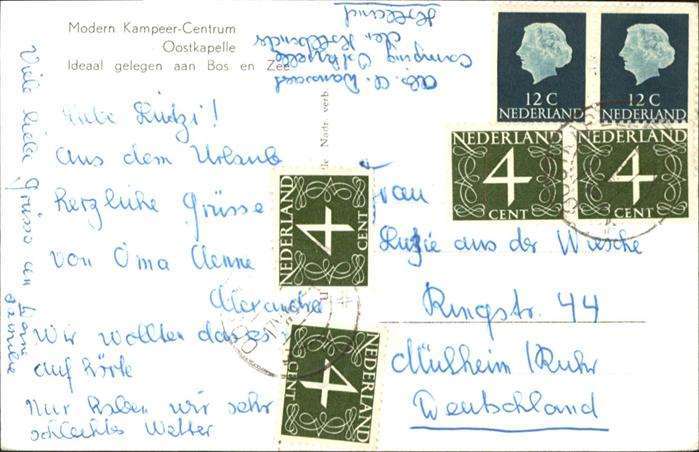 Modern Kampeer-Centrum
Oostkapelle
Ideaal gelegen aan Bos en Zee
Liebe Luizi!
aus dem Urlaub
herzliche Grüsse
von Oma Aenne
Alexandra
Wir wollten dass es
auf hörte
Nur haben wir sehr
schlechtes Wetter
Viele liebe Grüsse an
Abs.
Camping
Holland
Nadr. verb.
Frau
Luzie aus der Wiesche
Ringstr. 44
Mülheim/Ruhr
Deutschland
12 C
NEDERLAND
12 C
NEDERLAND
NEDERLAND
4
CENT
NEDERLAND
4
CENT
NEDERLAND
4
CENT
NEDERLAND
4
CENT